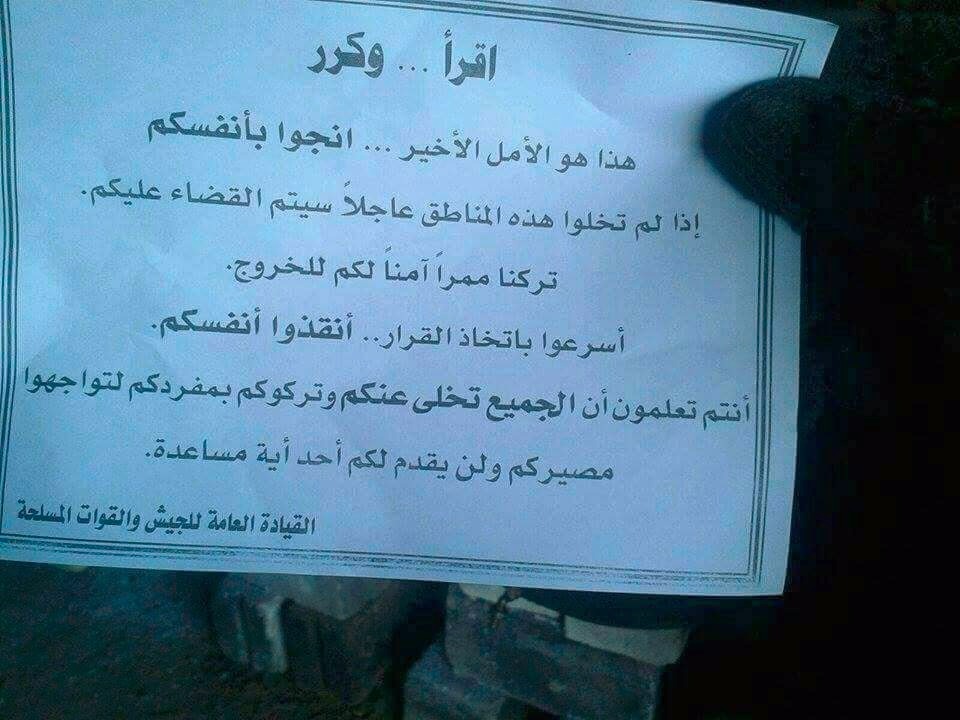 اقرأ ... وكرر
هذا هو الأمل الأخير ... انجوا بأنفسكم
إذا لم تخلوا هذه المناطق عاجلاً سيتم القضاء عليكم.
تركنا ممراً آمناً لكم للخروج.
أسرعوا باتخاذ القرار.. أنقذوا أنفسكم.
أنتم تعلمون أن الجميع تخلى عنكم وتركوكم بمفردكم لتواجهوا
مصيركم ولن يقدم لكم أحد أية مساعدة.
القيادة العامة للجيش والقوات المسلحة